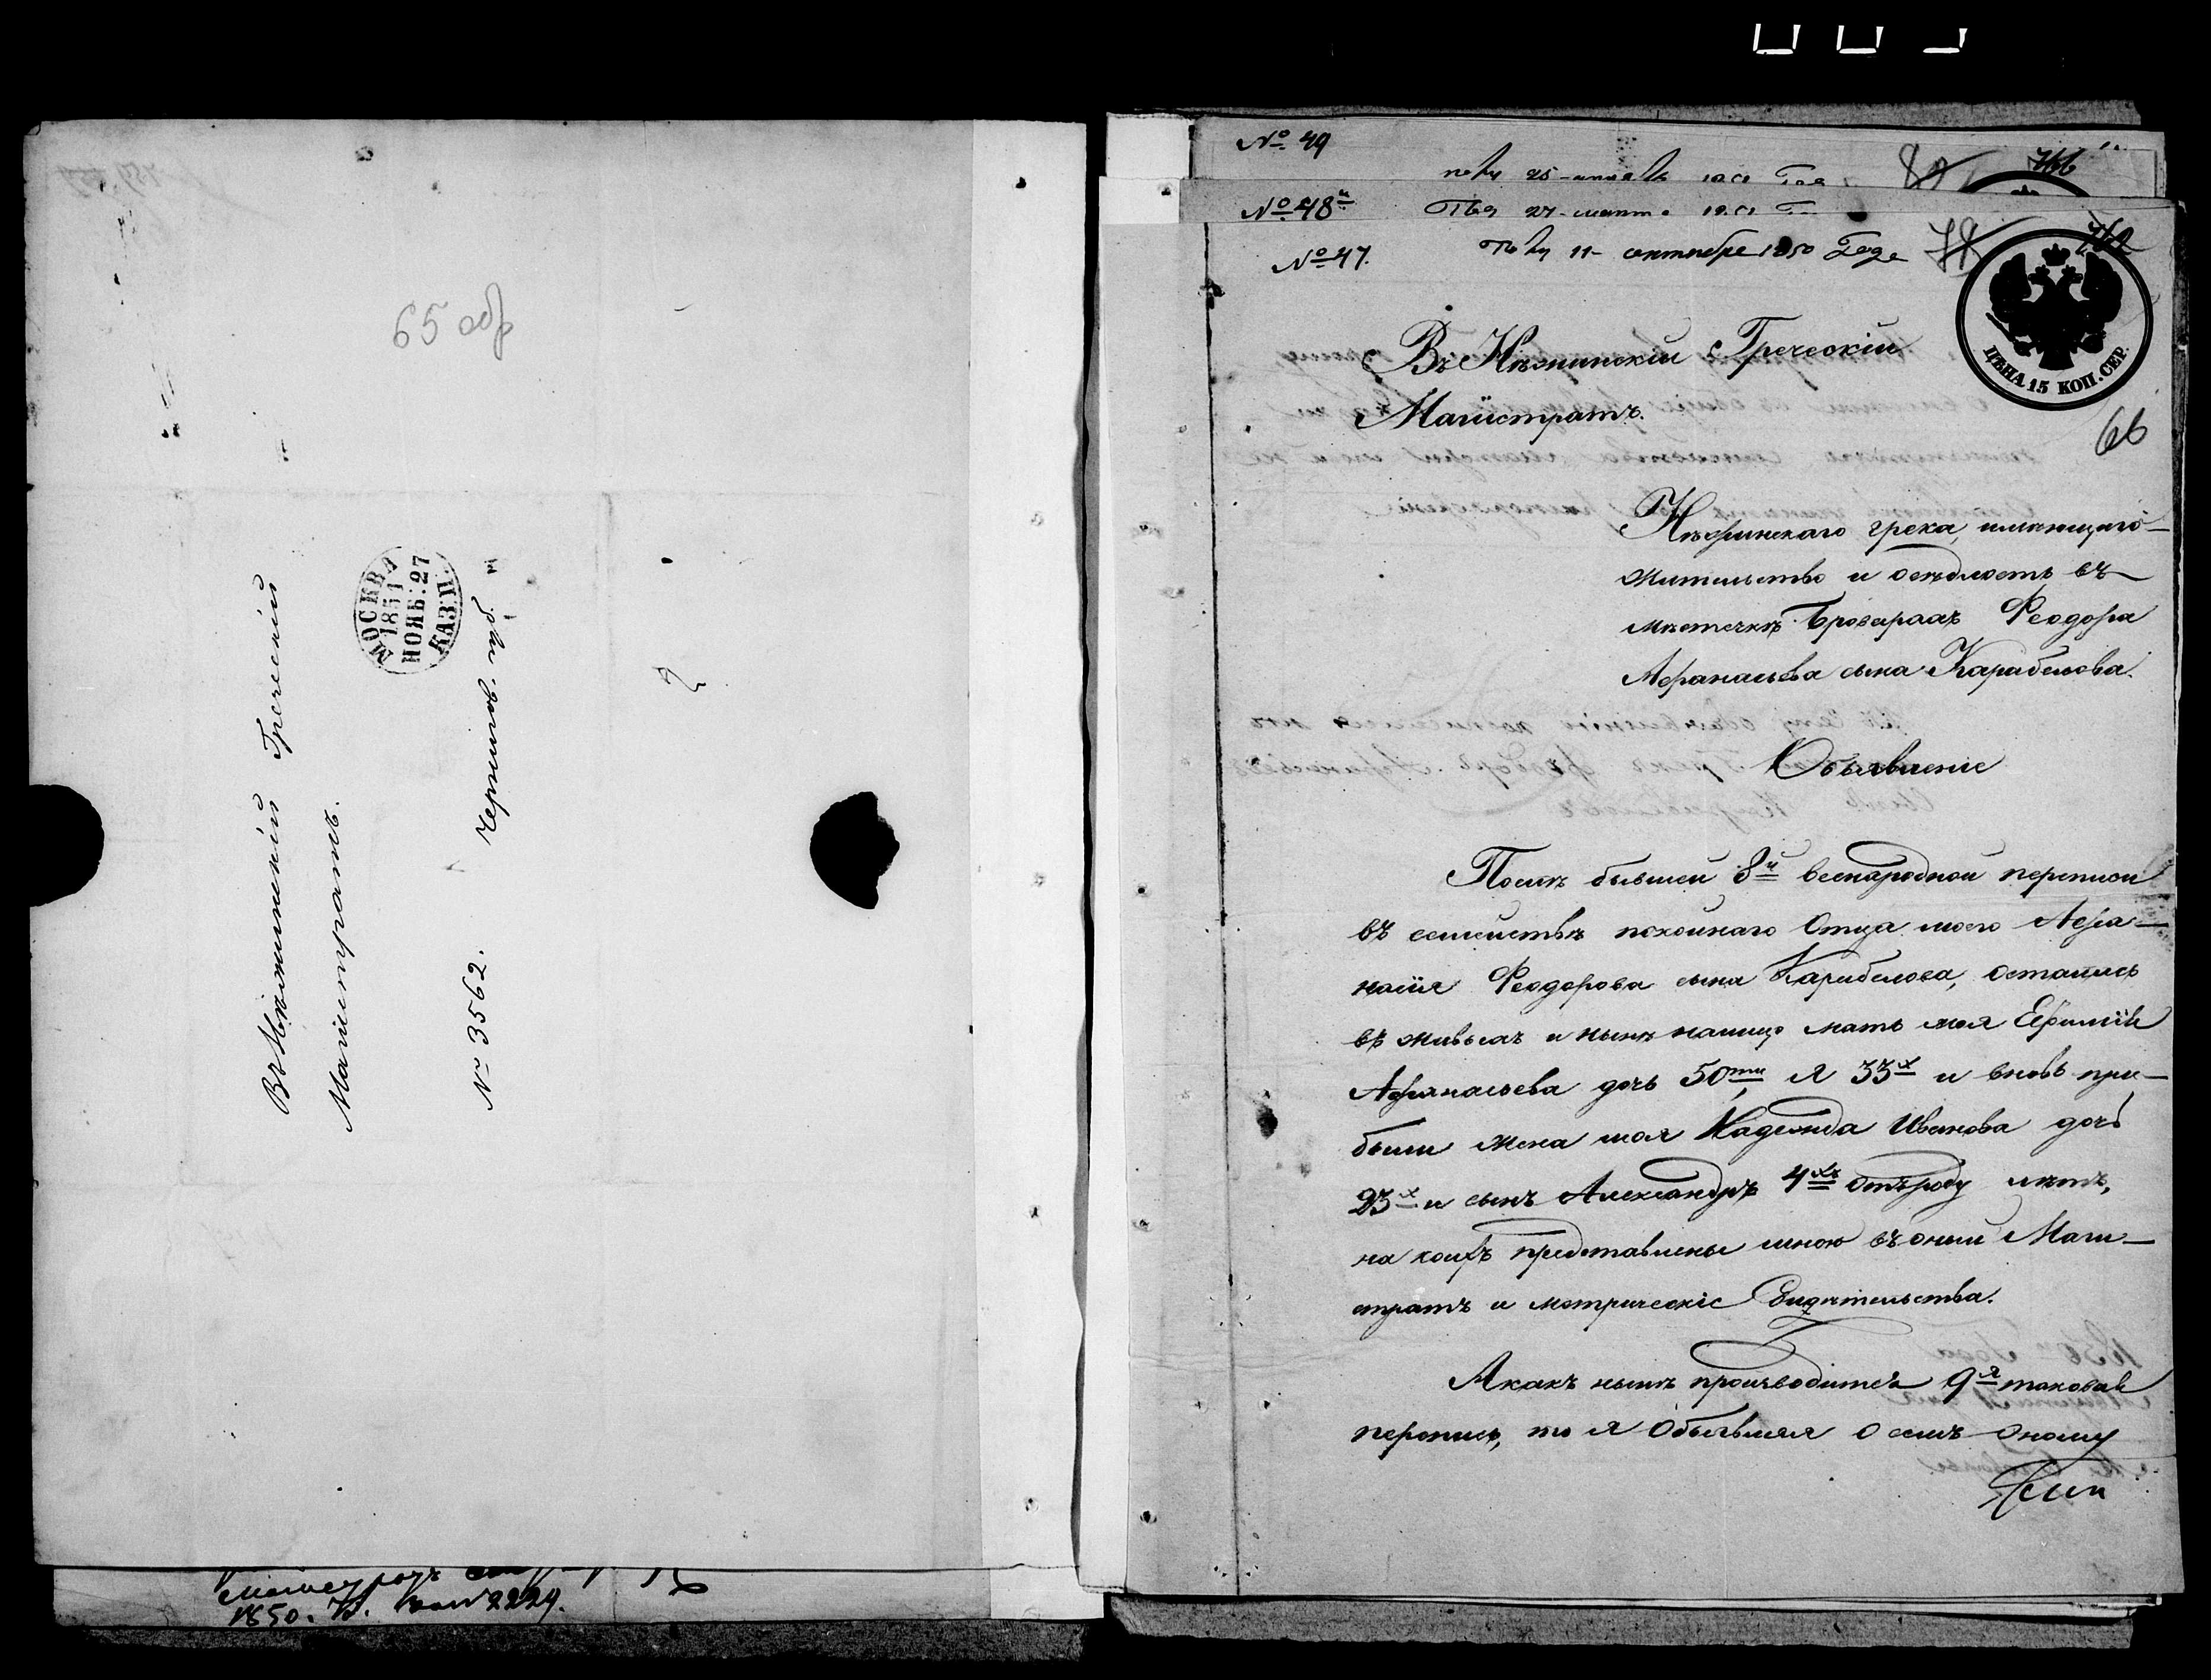 65 об
Въ Нѣжинскій Греческій
Магистратъ.
МОСКВА
1851
НОЯБ: 27
КАЗ.П.
Чернигов. губ.
№ 3562.
1850. № 2229.
№ 49
№ 48й
№ 47.
11 сентября 1850 Года
78
ЦѢНА 15 КОП. СЕР.
66
Въ Нѣжинскій Греческій
Магистратъ.
Нѣжинскаго грека, имѣющаго
жительство и осѣдлость въ
мѣстечкѣ Броварахъ Феодора
Афанасьева сына Карабелова.
Объявленіе
Послѣ бывшей 8й всенародной переписи
въ семействѣ покойнаго Отца моего Афа-
насія Феодорова сына Карабелова, остались
въ живыхъ и нынѣ налицо мать моя Ефимія
Афанасьева дочь 50ти, я 33х и вновь при-
были жена моя Надежда Иванова дочь
23х и сынъ Александръ 4хъ отъ роду лѣтъ,
на коихъ представлены мною въ оный Маги-
стратъ и метрическіе Свидѣтельства.
А какъ нынѣ производится 9я таковая
перепись, то я Объявляя о семъ Оному